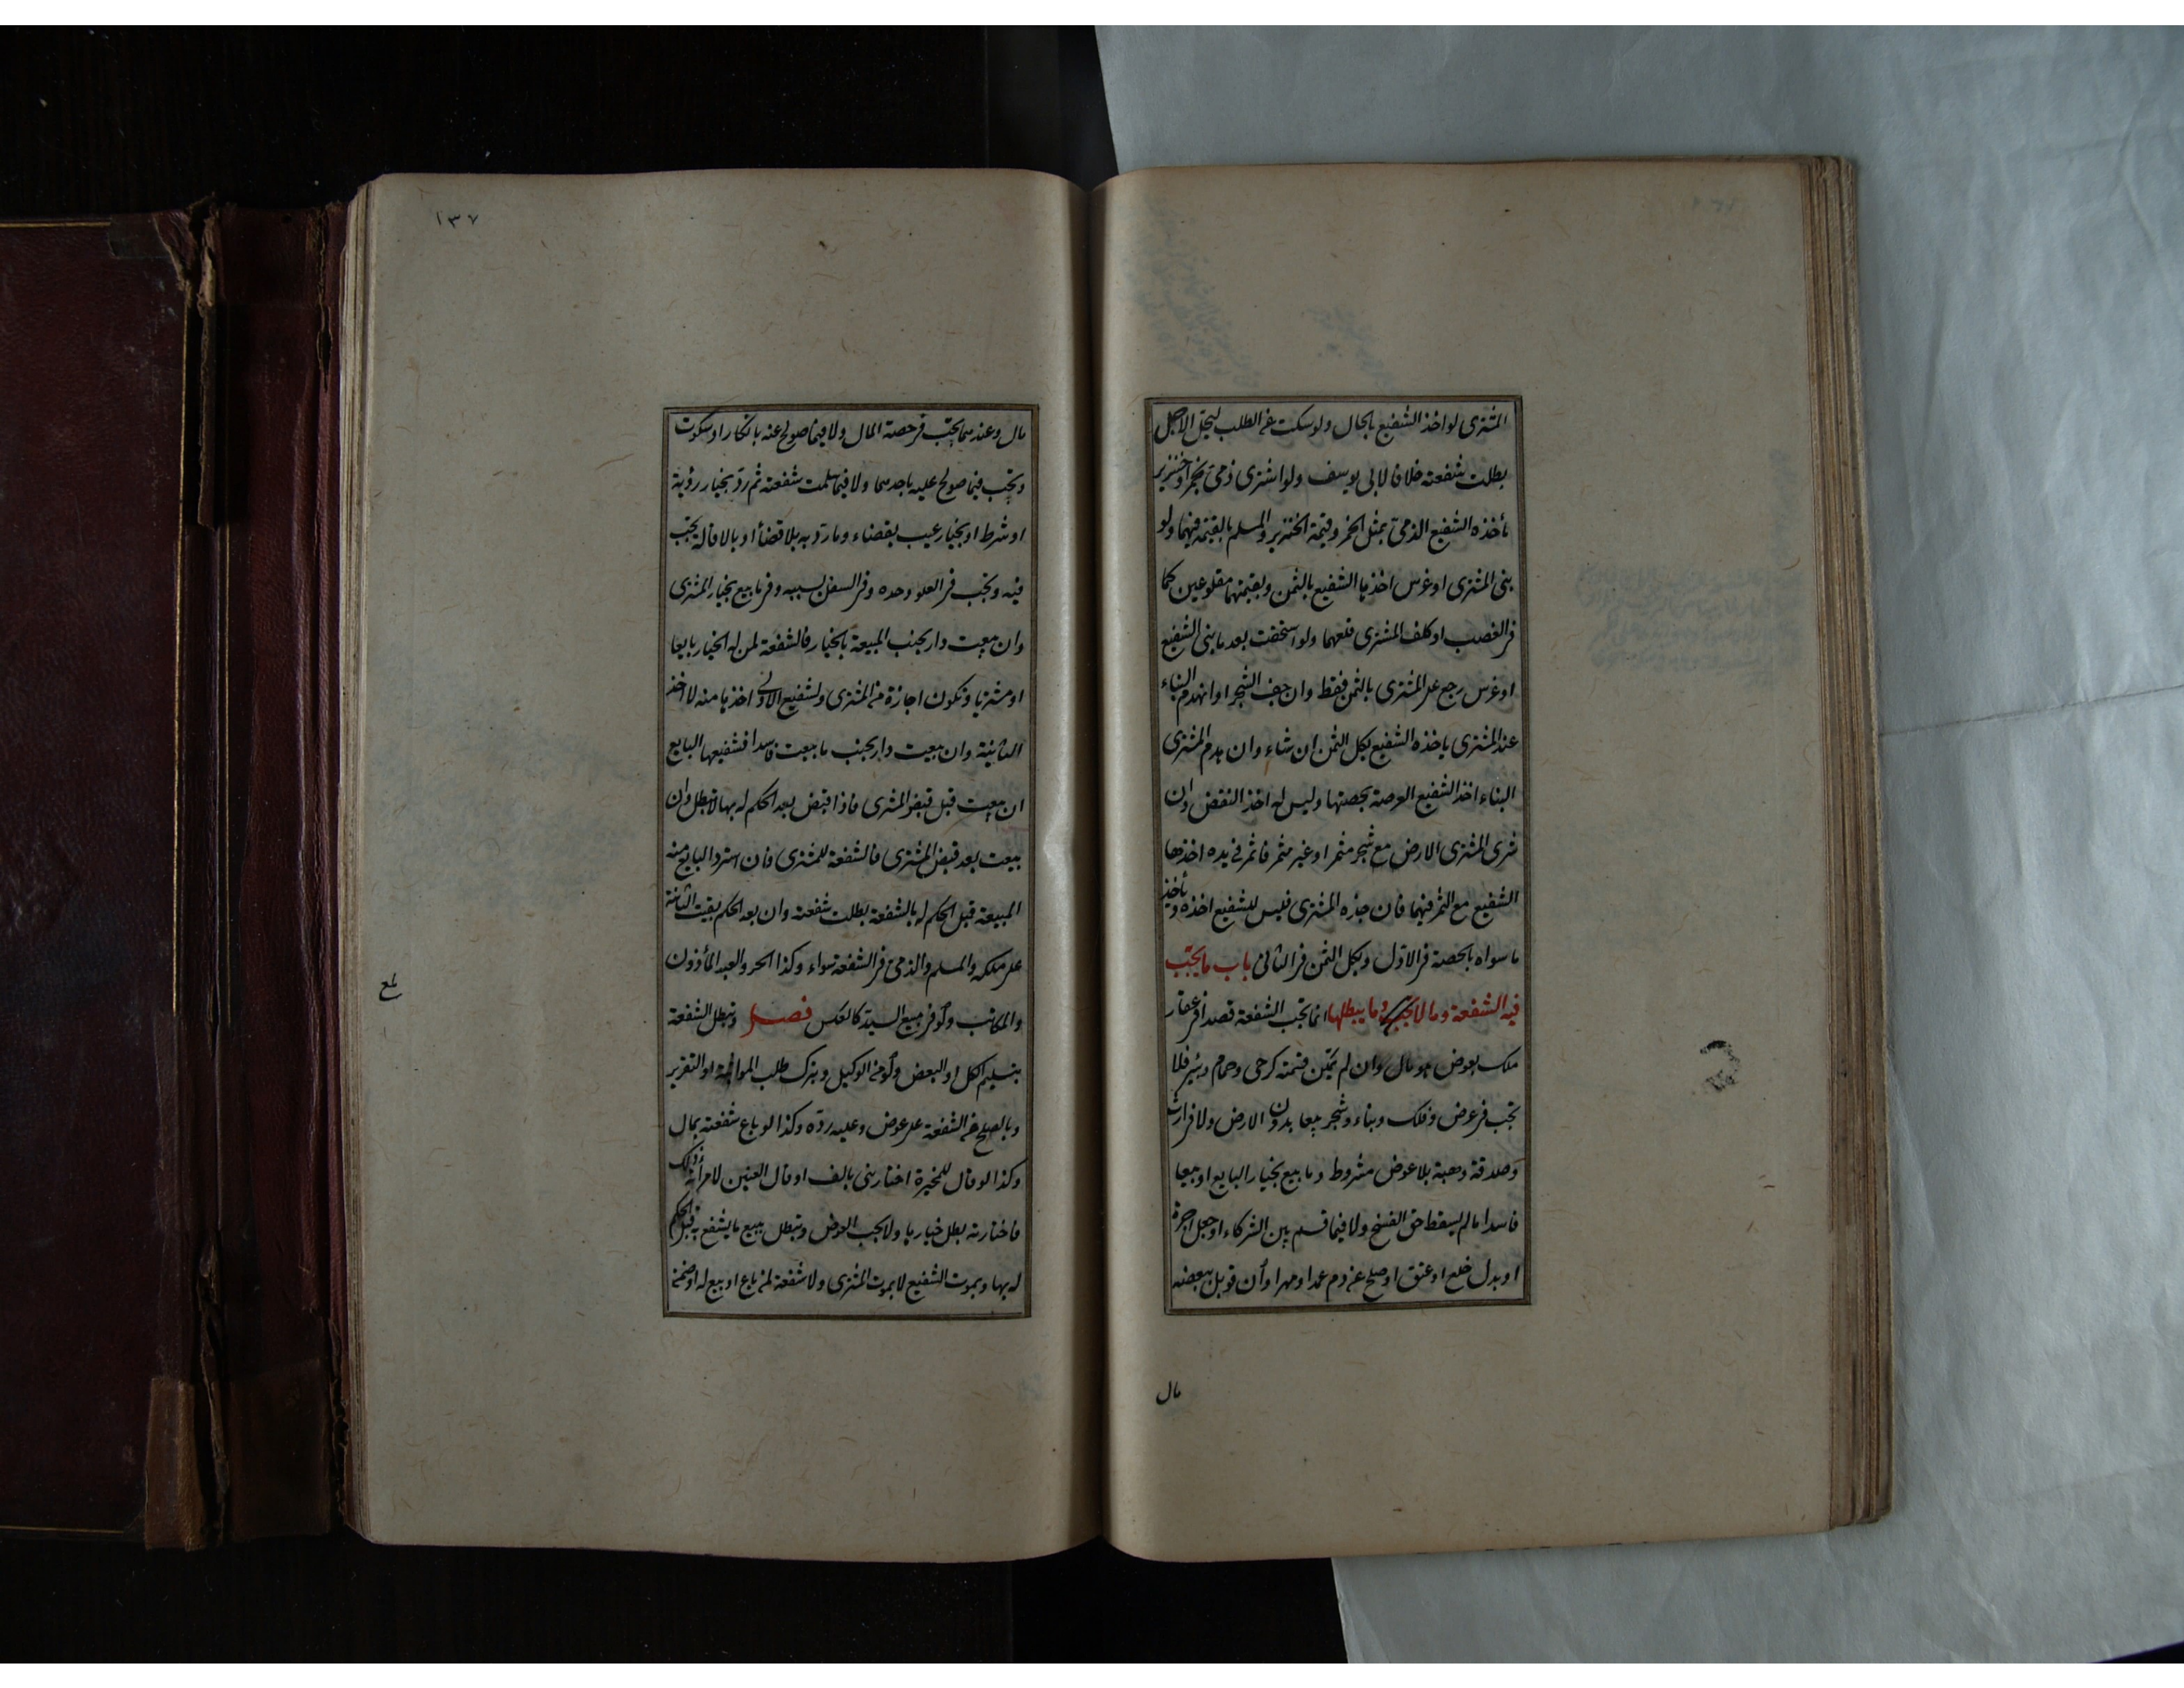 المشترى لو اخذ الشفيع بالحال ولو سكت عن الطلب ليحل الاجل
بطلت شفعته خلافا لابى يوسف ولو اشترى ذمى بخمر او خنزير
يأخذه الشفيع الذمى بمثل الخمر وقيمة الخنزير والمسلم بالقيمة فيهما ولو
بنى المشترى او غرس اخذها الشفيع بالثمن وبقيمتهما مقلوعين كما
فى الغصب او كلف المشترى قلعهما ولو استحقت بعد ما بنى الشفيع
او غرس رجع على المشترى بالثمن فقط وان جف الشجر او انهدم البناء
عند المشترى ياخذه الشفيع بكل الثمن ان شاء وان هدم المشترى
البناء اخذ الشفيع العرصة بحصتها وليس له اخذ النقض وان
شرى المشترى الارض مع شجر مثمر او غير مثمر فاثمر فى يده اخذها
الشفيع مع الثمر فيهما فان جذه المشترى فليس للشفيع اخذه ويأخذ
ما سواه بالحصة فى الاول وبكل الثمن فى الثانى باب ما يجب
فيه الشفعة وما لا يجب وما يبطلها انما تجب الشفعة قصدا فى عقار
ملك بعوض هو مال وان لم يمكن قسمته كرحى وحمام وبئر فلا
تجب فى عرض وفلك وبناء وشجر بيعا بدون الارض ولا فى ارث
وصدقة وهبة بلا عوض مشروط وما بيع بخيار البايع او بيعا
فاسدا ما لم يسقط حق الفسخ ولا فيما قسم بين الشركاء او جعل اجرة
او بدل خلع او عتق او صلح عن دم عمد او مهرا وان قوبل ببعضه
مال
١٣٧
مال وعندهما تجب فى حصة المال ولا فيما صولح عنه بانكار او سكوت
وتجب فيما صولح عليه باحدهما ولا فيما سلمت شفعته ثم رد بخيار رؤية
او شرط او بخيار عيب بقضاء وما رد به بلا قضاء او بالاقالة يجب
فيه وتجب فى العلو وحده وفى السفل بسببه وفيما بيع بخيار المشترى
وان بيعت دار بجنب المبيعة بالخيار فالشفعة لمن له الخيار بايعا
او مشتريا وتكون اجازة من المشترى ولشفيع الاولى اخذها منه لا اخذ
الثانية وان بيعت دار بجنب ما بيعت فاسدا فشفيعها البايع
ان بيعت قبل قبض المشترى فاذا قبض بعد الحكم له بها لا تبطل وان
بيعت بعد قبض المشترى فالشفعة للمشترى فان استرد البايع منه
المبيعة قبل الحكم له بالشفعة بطلت شفعته وان بعد الحكم بقيت الثانية
على ملكه والمسلم والذمى فى الشفعة سواء وكذا الحر والعبد المأذون
والمكاتب ولو فى مبيع السيد كالعكس فصل وتبطل الشفعة
بتسليم الكل او البعض ولو من الوكيل وبترك طلب المواثبة او التقرير
وبالصلح عن الشفعة على عوض وعليه رده وكذا لو باع شفعته بمال
وكذا لو قال للمخيرة اختارينى بالف او قال العنين لامرأته ذلك
فاختارته بطل خيارها ولا يجب العوض وتبطل ببيع ما يشفع به قبل الحكم
له بها وبموت الشفيع لا بموت المشترى ولا شفعة لمن باع او بيع له او ضمن